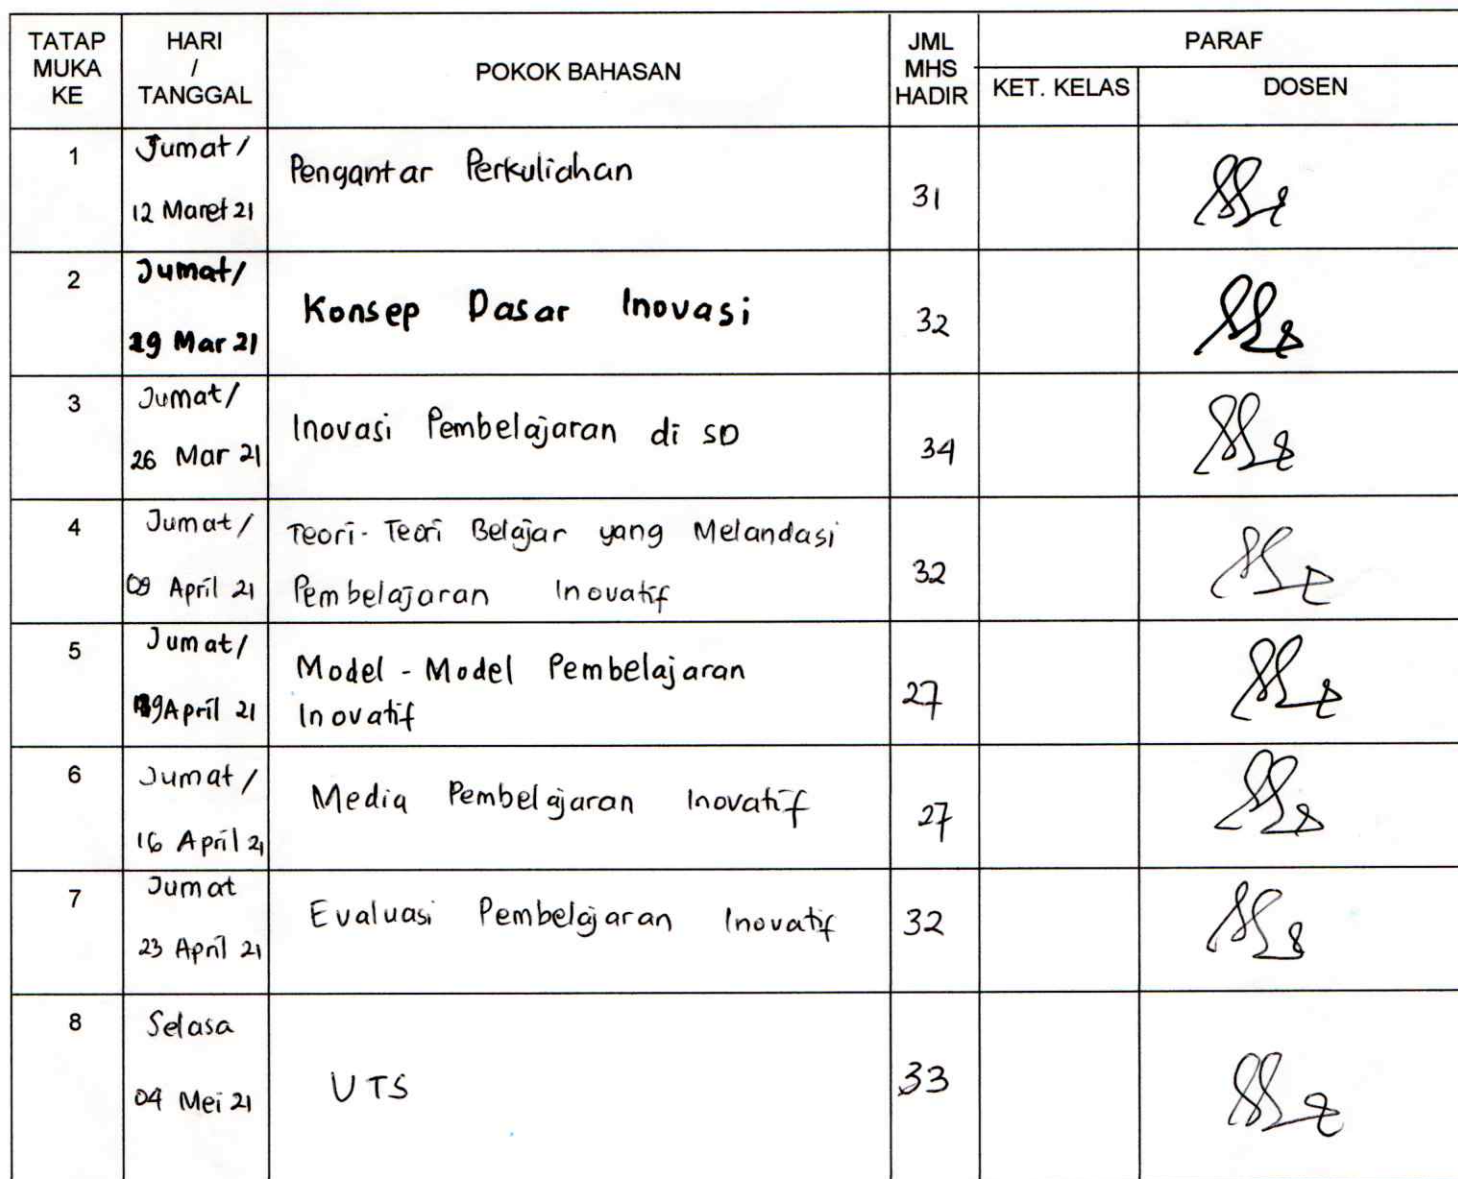 TATAP MUKA KE
HARI / TANGGAL
POKOK BAHASAN
JML MHS HADIR
PARAF
KET. KELAS
DOSEN
1
Jumat /
12 Maret 21
Pengantar Perkuliahan
31
2
Jumat /
19 Mar 21
Konsep Dasar Inovasi
32
3
Jumat /
26 Mar 21
Inovasi Pembelajaran di SD
34
4
Jumat /
09 April 21
Teori-Teori Belajar yang Melandasi
Pembelajaran Inovatif
32
5
Jumat /
April 21
Model - Model Pembelajaran
Inovatif
27
6
Jumat /
16 April 21
Media Pembelajaran Inovatif
27
7
Jumat
23 April 21
Evaluasi Pembelajaran Inovatif
32
8
Selasa
04 Mei 21
UTS
33